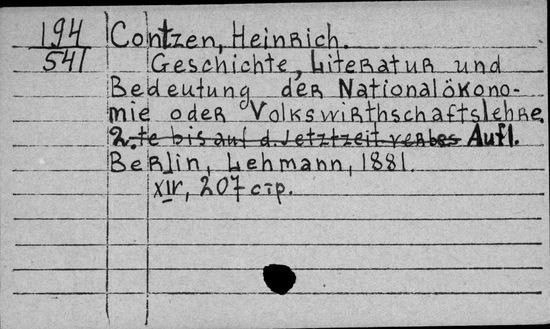 194 Contzen, Heinrich.
541 Geschichte, Literatur und
Bedeutung der Nationalökono-
mie oder Volkswirthschaftslehre.
2.te bis auf d. Jetztzeit verbes Aufl.
Berlin, Lehmann, 1881.
XIV, 207 стр.